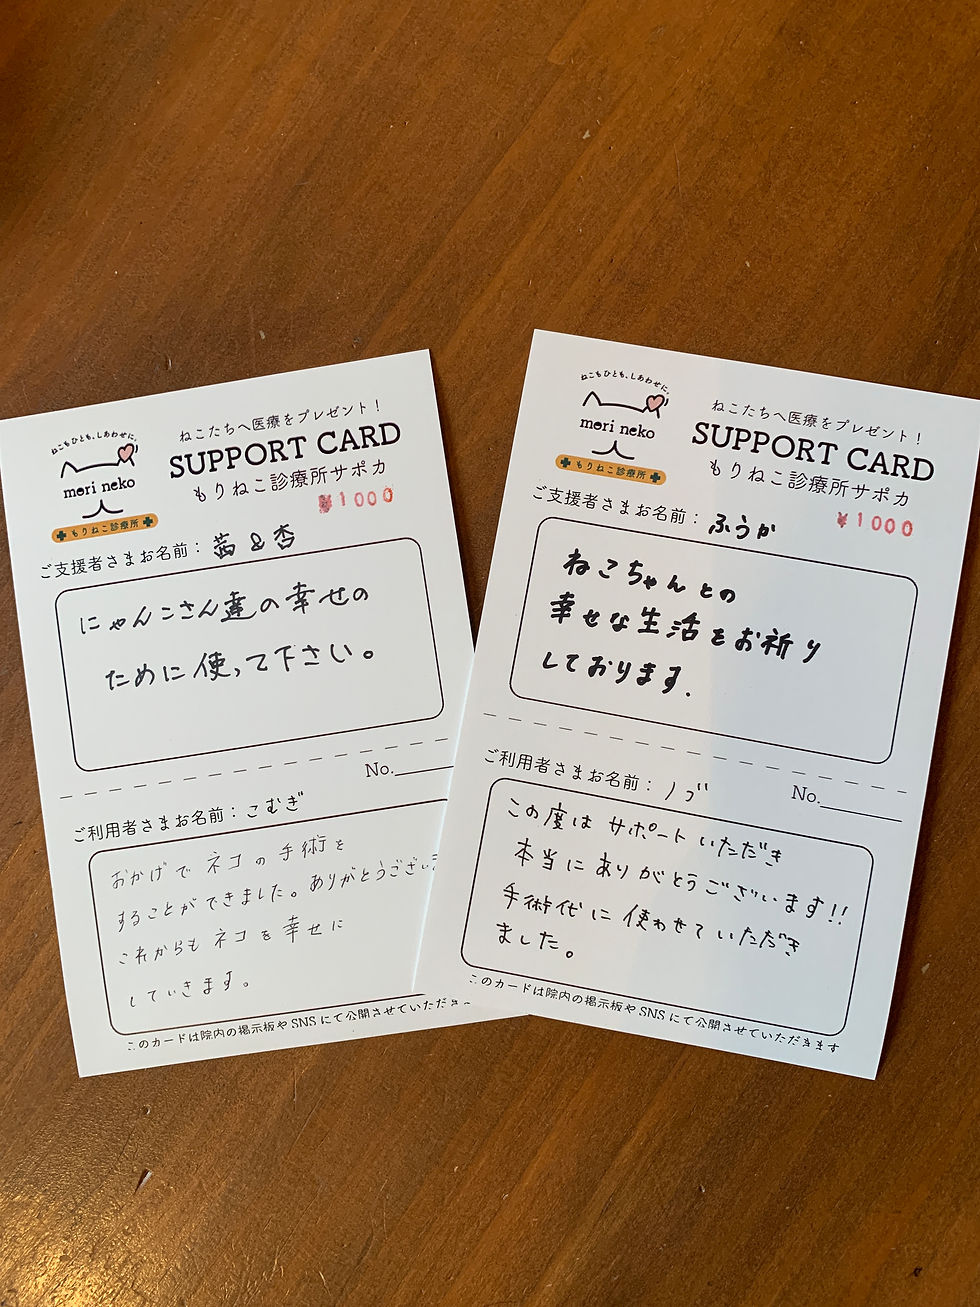 ねこもひとも、しあわせに。
mori neko
もりねこ診療所
ねこたちへ医療をプレゼント！
SUPPORT CARD
もりねこ診療所サポカ
¥1000
ご支援者さまお名前：茜＆杏
にゃんこさん達の幸せの
ために使って下さい。
No.
ご利用者さまお名前：こむぎ
おかげでネコの手術を
することができました。ありがとうござい
これからもネコを幸せに
していきます。
このカードは院内の掲示板やSNSにて公開させていただき
ねこもひとも、しあわせに。
mori neko
もりねこ診療所
ねこたちへ医療をプレゼント！
SUPPORT CARD
もりねこ診療所サポカ
¥1000
ご支援者さまお名前：ふうか
ねこちゃんとの
幸せな生活をお祈り
しております.
No.
ご利用者さまお名前：ノブ
この度はサポートいただき
本当にありがとうございます!!
手術代に使わせていただき
ました。
このカードは院内の掲示板やSNSにて公開させていただきます